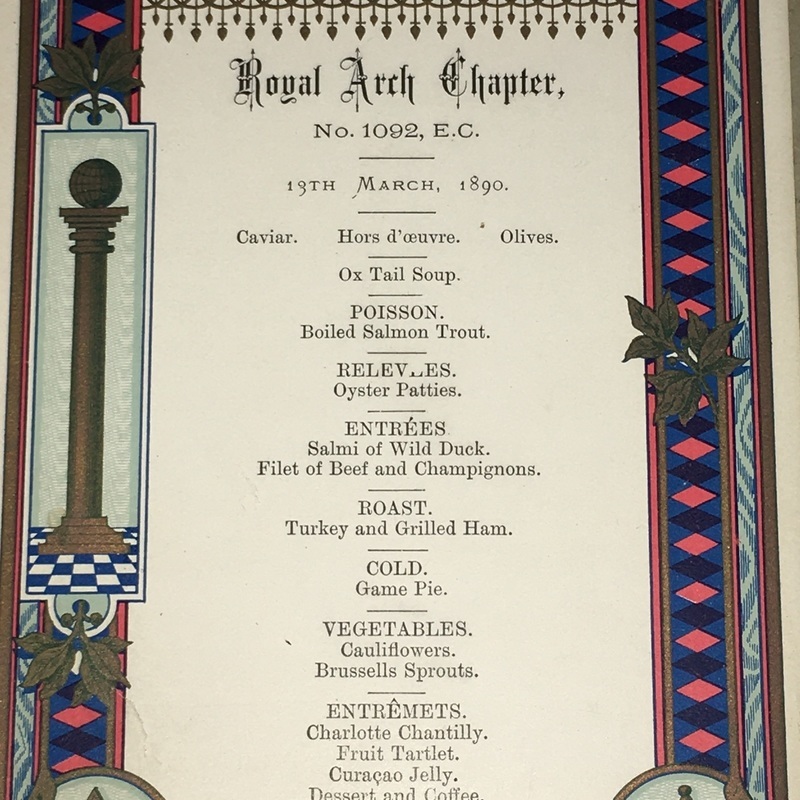 Royal Arch Chapter,
No. 1092, E.C.
13TH MARCH, 1890.
Caviar. Hors d'œuvre. Olives.
Ox Tail Soup.
POISSON.
Boiled Salmon Trout.
RELEVÉES.
Oyster Patties.
ENTRÉES
Salmi of Wild Duck.
Filet of Beef and Champignons.
ROAST.
Turkey and Grilled Ham.
COLD.
Game Pie.
VEGETABLES.
Cauliflowers.
Brussells Sprouts.
ENTRÊMETS.
Charlotte Chantilly.
Fruit Tartlet.
Curaçao Jelly.
Dessert and Coffee.